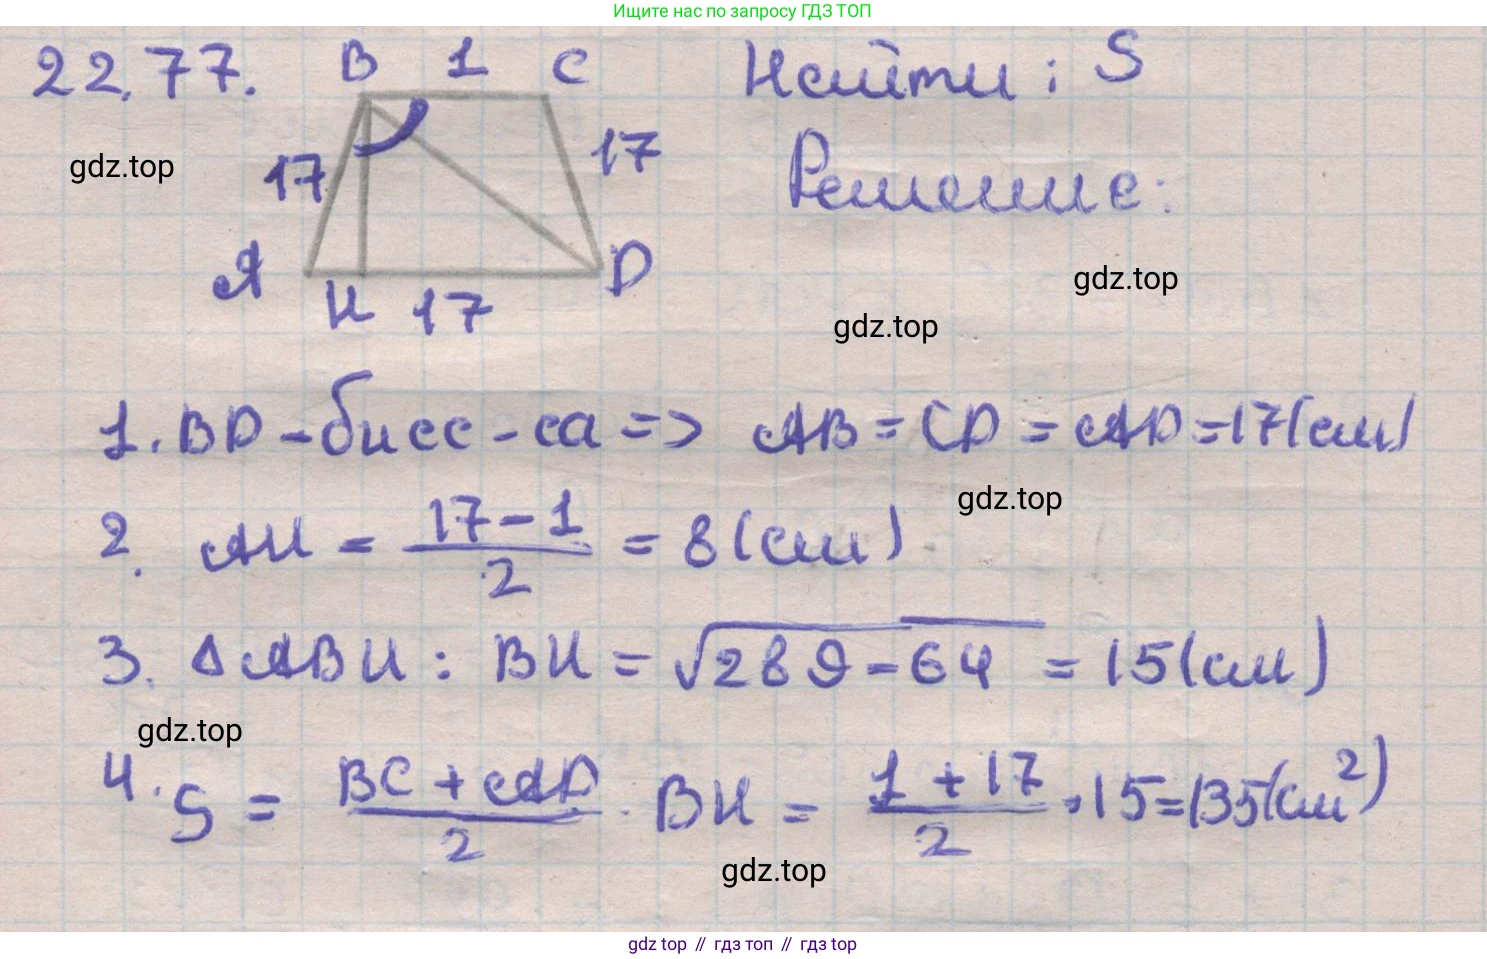 Ищите нас по запросу ГДЗ ТОП
22.77. B 1 C Найти: S
gdz.top 17 17 Решение:
A H 17 D
gdz.top
gdz.top
1. BD - бисс-са => AB = CD = AD = 17(см)
gdz.top
2. AH = (17-1)/2 = 8(см)
3. ΔABH: BH = √289-64 = 15(см)
gdz.top
4. S = (BC + AD)/2 · BH = (1 + 17)/2 · 15 = 135(см²)
gdz.top
gdz top // гдз топ // gdz top